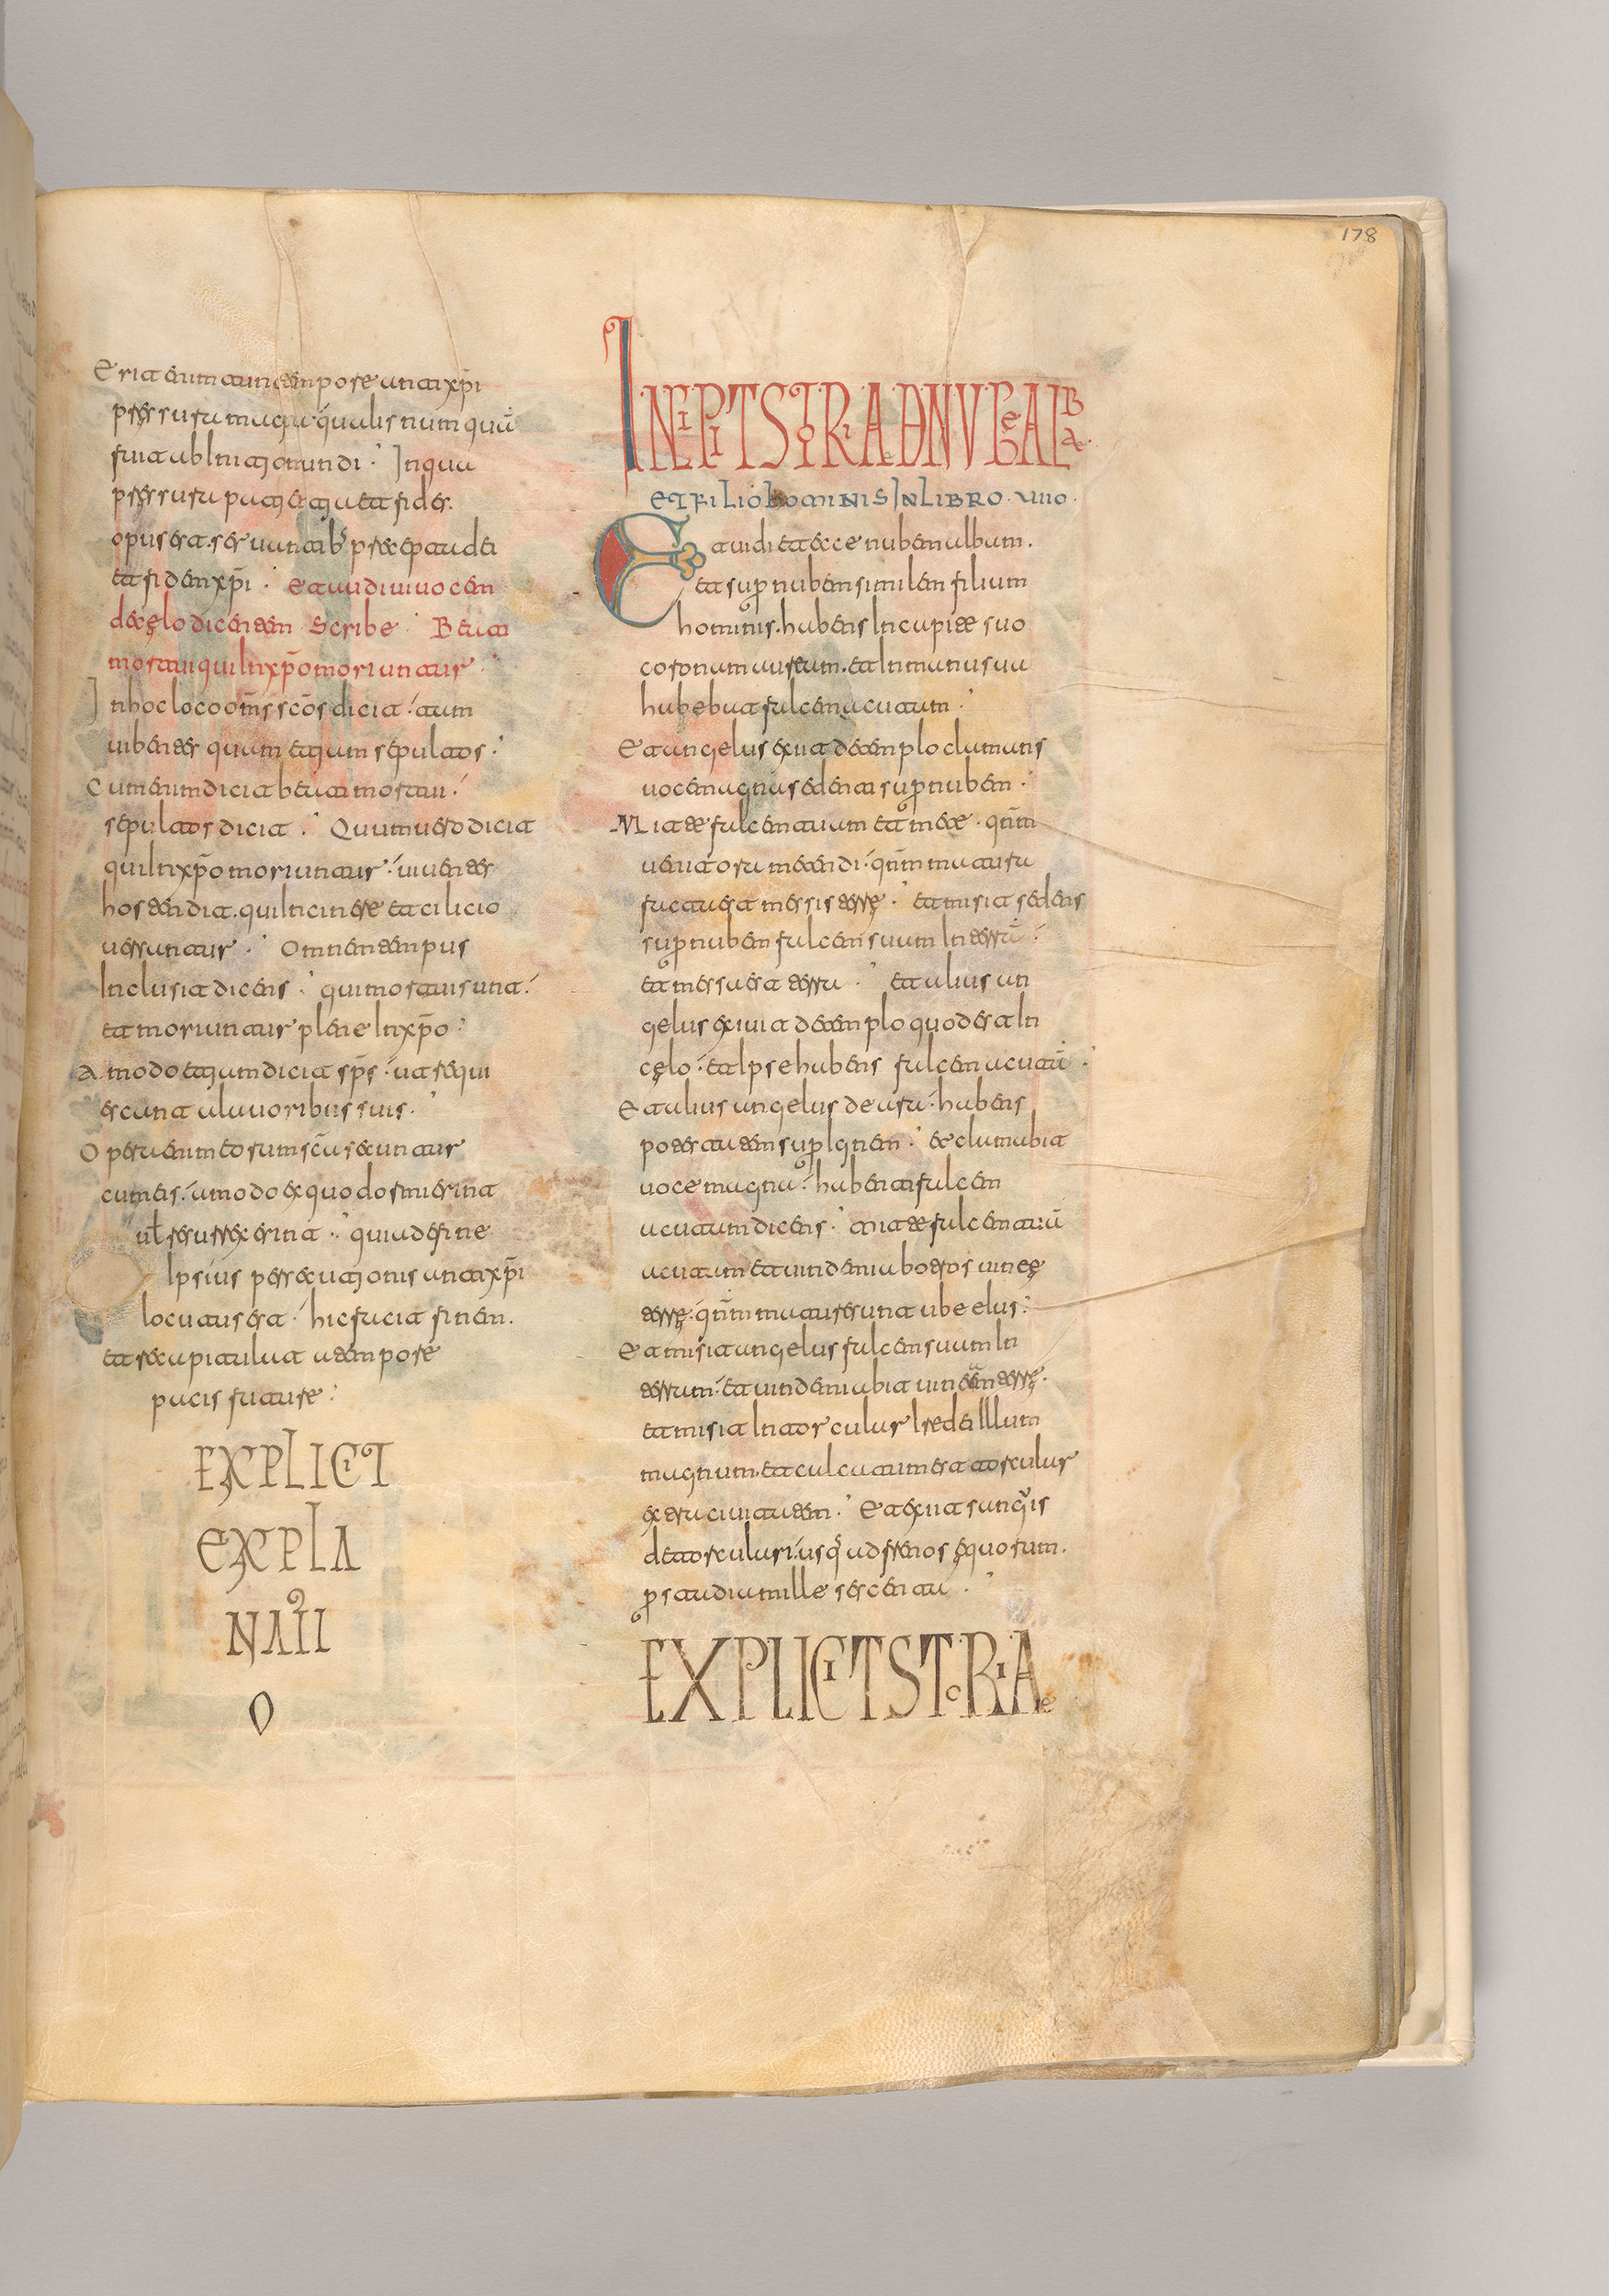 Erit enim tum tempore antixp̄i
pressura magna qualis numquā
fuit ab initio mundi. In qua
pressura patientia et fides
opus erat. servantib precepta dei
et fidem xp̄i. Et audivi vocem
de cęlo dicentem Scribe. Beati
mortui qui in xp̄o moriuntur.
In hoc loco om̄s sc̄os dicit. tum
vibentes quam etiam sepultos.
Cum enim dicit beati mortui.
sepultos dicit. Quum vero dicit
qui in xp̄o moriuntur. viventes
hos tendit. qui in cinere et cilicio
versantur. Omnem tempus
inclusit dicens. qui mortui sunt.
et moriuntur plene in xp̄o.
A modo etiam dicit sp̄s. ut requi
escant a lavoribus suis.
Opera enim eorum secuntur
cum eis. a modo ex quo dormierint
vl resurrexerint. quia de fine
ipsius persecutionis antixp̄i
locutus erat. hic facit finem.
et recapitulat a tempore
pacis future.
EXPLICIT
EXPLA
NATI
O
INCIPIT STORIA DE NUBE ALBA.
ET FILIO HOMINIS IN LIBRO. VIIIO.
Et vidi et ecce nubem albam.
et supr nubem similem filium
hominis. habens in capite suo
coronam auream. et in manu sua
habebat falcem acutam.
Et angelus exiit de templo clamans
voce magna sedenti supr nubem.
Mitte falcem tuam et mete. qn̄m
venit ora metendi. qn̄m matura
facta est messis terrę. et misit sedens
supr nubem falcem suam in terrā.
et messuera terra. et alius an
gelus exivit de templo quod est in
cęlo. et ipse habens falcem acutā.
Et alius angelus de ara. habens
potestatem supr ignem. et clamabit
voce magna. habenti falcem
acutam dicens. mitte falcem tuā
acutam et vindemia botros vineę
terrę. qn̄m mature sunt ube eius.
Et misit angelus falcem suam in
terram. et vindemiabit vineam terrę.
et misit in torcular ire dei illum
magnum. et calcatum est torcular
extra civitatem. Et exiit sangis
de torculari. usq ad frenos equorum.
pr stadia mille sescenta.
EXPLICIT STORIAe
178